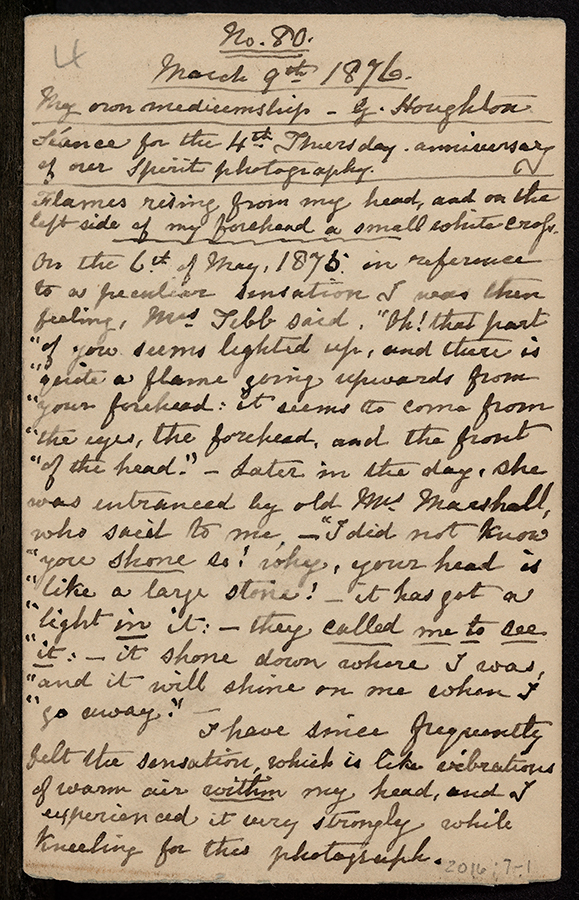 4
No. 80.
March 9th 1876.
My own mediumship - G. Houghton
Séance for the 4th Thursday anniversary
of our Spirit photography.
Flames rising from my head, and on the
left side of my forehead a small white cross.
On the 6th of May, 1875 in reference
to a peculiar sensation I was then
feeling, Mrs Tebb said, "Oh! that part
"of you seems lighted up, and there is
"quite a flame going upwards from
"your forehead: it seems to come from
"the eyes, the forehead, and the front
"of the head." - Later in the day, she
was entranced by old Mrs Marshall,
who said to me, - "I did not know
"you shone so! why, your head is
"like a large stone! - it has got a
"light in it: - they called me to see
"it: - it shone down where I was,
"and it will shine on me when I
"go away." -
I have since frequently
felt the sensation, which is like vibrations
of warm air within my head, and I
experienced it very strongly while
kneeling for this photograph.
2016:7-1